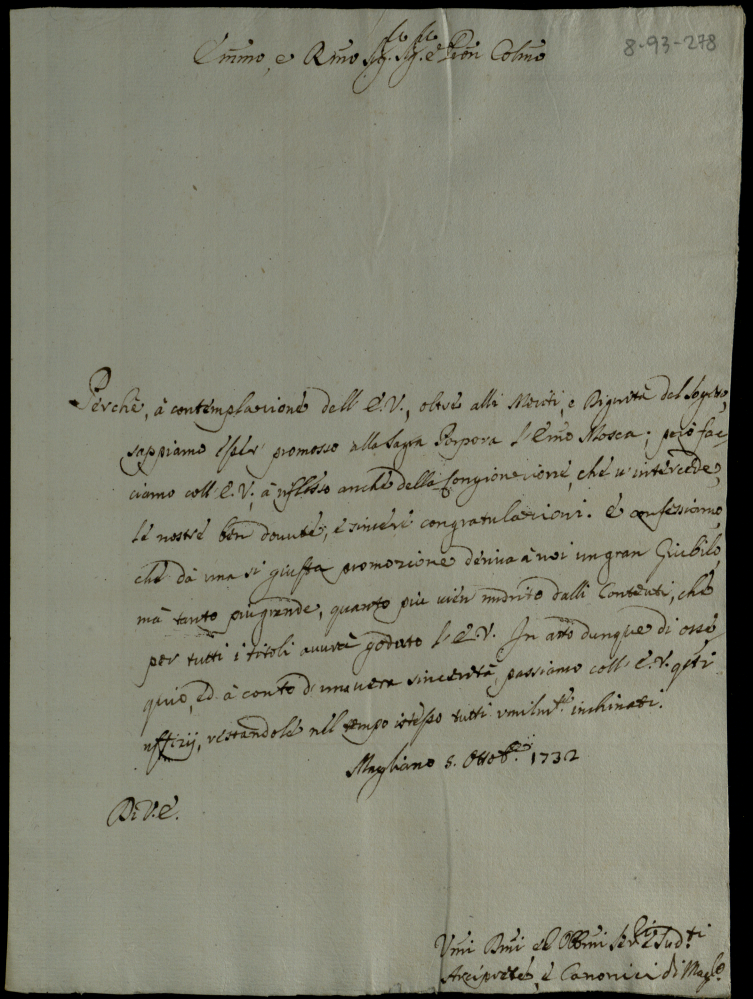 8-93-278
Em̃mo, e Rm̃o Sig.re Sig.re e Pron Colmo
Perche, à contemplazione dell' E.V., oltre alli Meriti, e Dignità del Sogetto,
sappiamo esser promosso alla Sagra Porpora l'Em̃o Mosca; però fac
ciamo coll' E.V., à riflesso anche della Congionzione, che u'intercede,
le nostre ben douute, e sincere congratulazioni. E confessiamo,
che dà una si giusta promozione deriua à noi un gran Giubilo,
mà tanto più grande, quanto più uien nudrito dalli Contenti, che
per tutti i titoli auurà goduto l'E.V. In atto dunque di osse
quio, ed à conto d'una uera sincerità, passiamo coll' E.V. qsti
uffizij, restandole nel tempo istesso tutti umilm.te inchinati.
Magliano 5. Ottob.re 1732
Di V.E.
Vmi Dmi ed Obbmi Ser.ri e Sud.ti
Arciprete, e Canonici di Magl.o